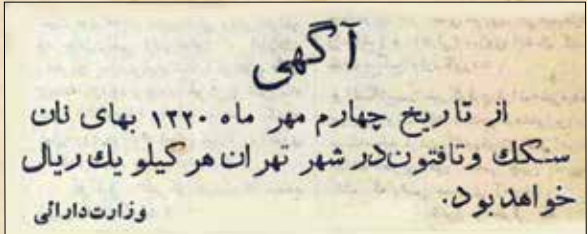 آگهی
از تاریخ چهارم مهر ماه ۱۳۲۰ بهای نان
سنگك وتافتون در شهر تهران هر کیلو یك ریال
خواهد بود.
وزارت دارائی